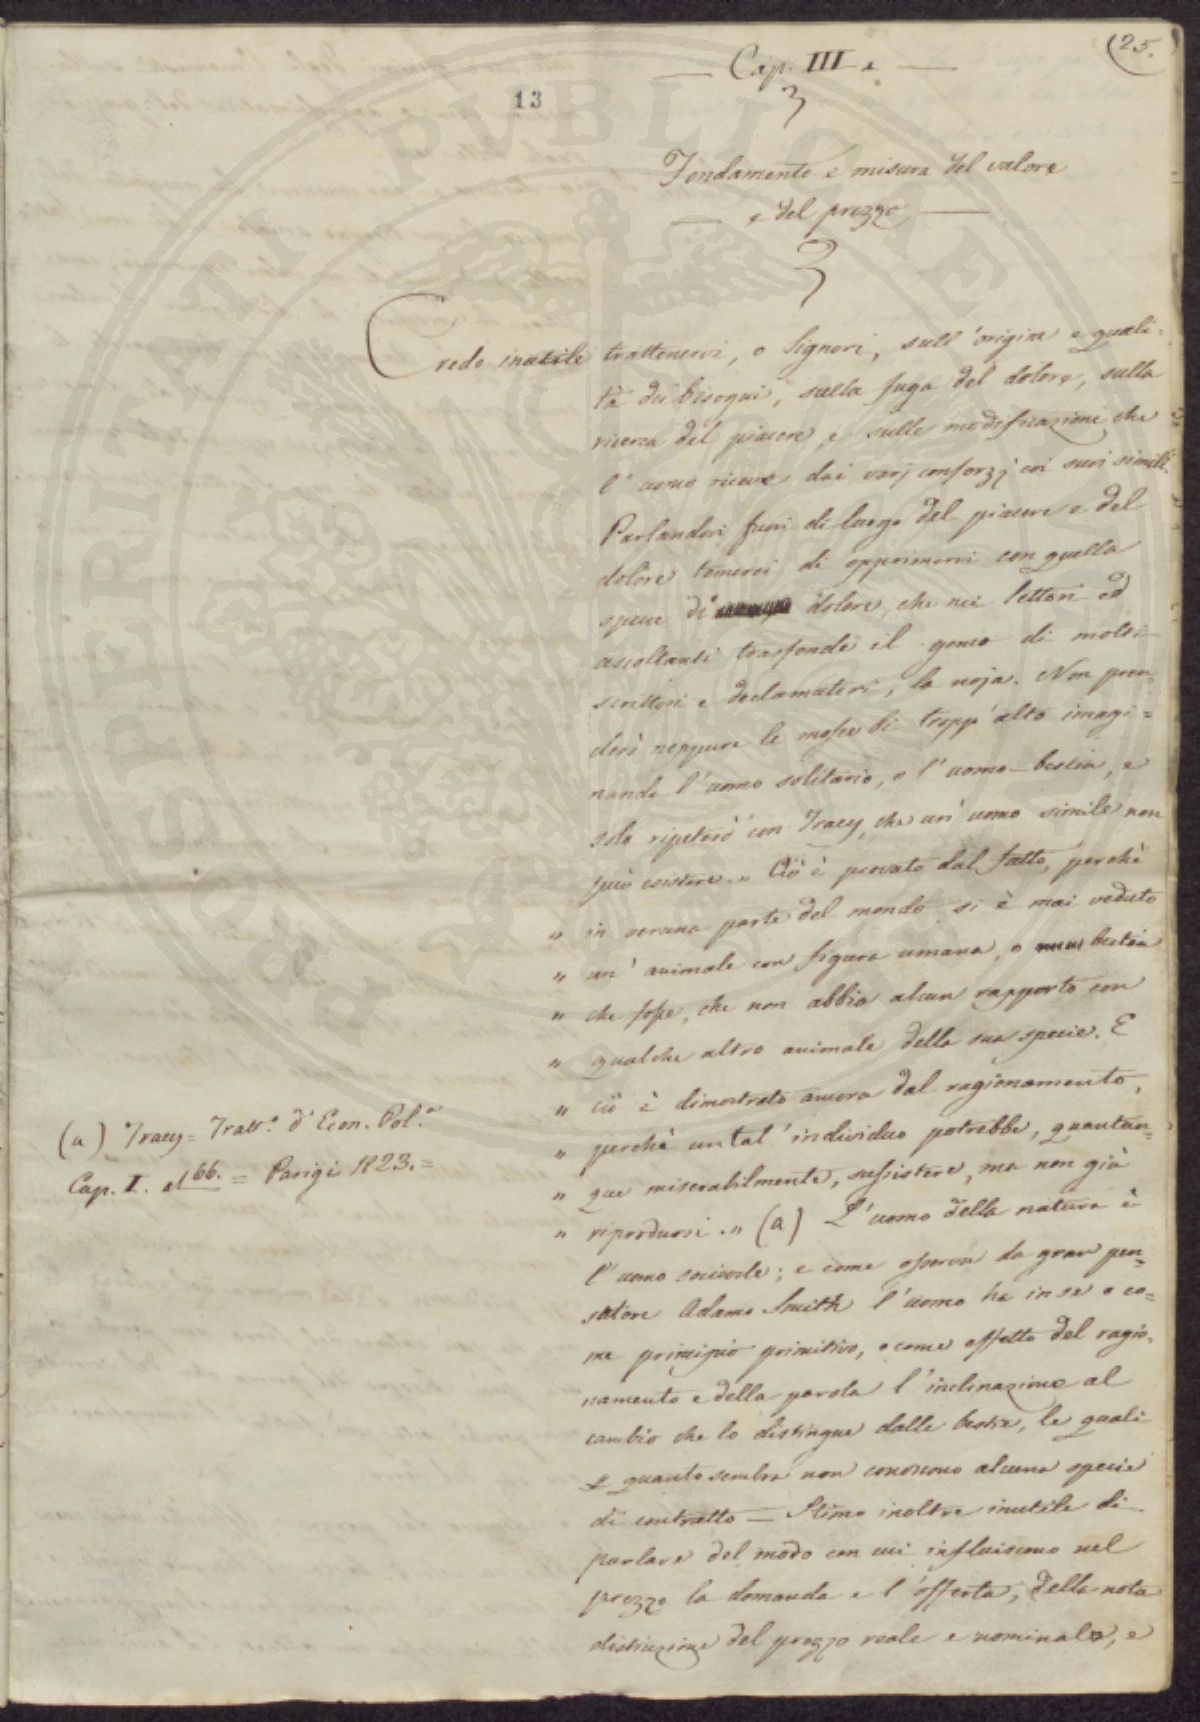 (25.
Cap. III e
13
Fondamento e misura del valore
e del prezzo
Credo inutile trattenervi, o Signori, sull'origine e quali-
tà dei bisogni, sulla fuga del dolore, sulla
ricerca del piacere, e sulle modificazioni che
l'uomo riceve dai varj consorzj coi suoi simili.
Parlandovi fuori di luogo del piacere e del
dolore temerei di opprimervi con quella
specie di dolore, che nei lettori ed
ascoltanti trasfonde il genio di molti
scrittori e declamatori, la noja. Non pren-
derò neppure le mosse di tropp'alto imagi=
nando l'uomo solitario, o l'uomo-bestia, e
solo ripeterò con Tracy, che un'uomo simile non
può esistere. „ Ciò è provato dal fatto, perchè
„ in veruna parte del mondo si è mai veduto
„ un'animale con figura umana, o bestia
„ che fosse, che non abbia alcun rapporto con
„ qualche altro animale della sua specie. E
„ ciò è dimostrato ancora dal ragionamento,
„ perchè un tal'individuo potrebbe, quantun=
„ que miserabilmente, sussistere, ma non già
„ riprodursi. „ (a) L'uomo della natura è
l'uomo socievole; e come osserva da gran pen=
satore Adamo Smith l'uomo ha in se o co=
me principio primitivo, o come effetto del ragio-
namento e della parola l'inclinazione al
cambio che lo distingue dalle bestie, le quali
a quanto sembra non conoscono alcuna specie
di contratto — Stimo inoltre inutile di
parlare del modo con cui influiscono nel
prezzo la domanda e l'offerta, della nota
distinzione del prezzo reale e nominale, e
(a) Tracy = Tratt.o d'Econ. Pol.a
Cap. I. 66. = Parigi 1823. =
SUPERITATI PUBLICAE